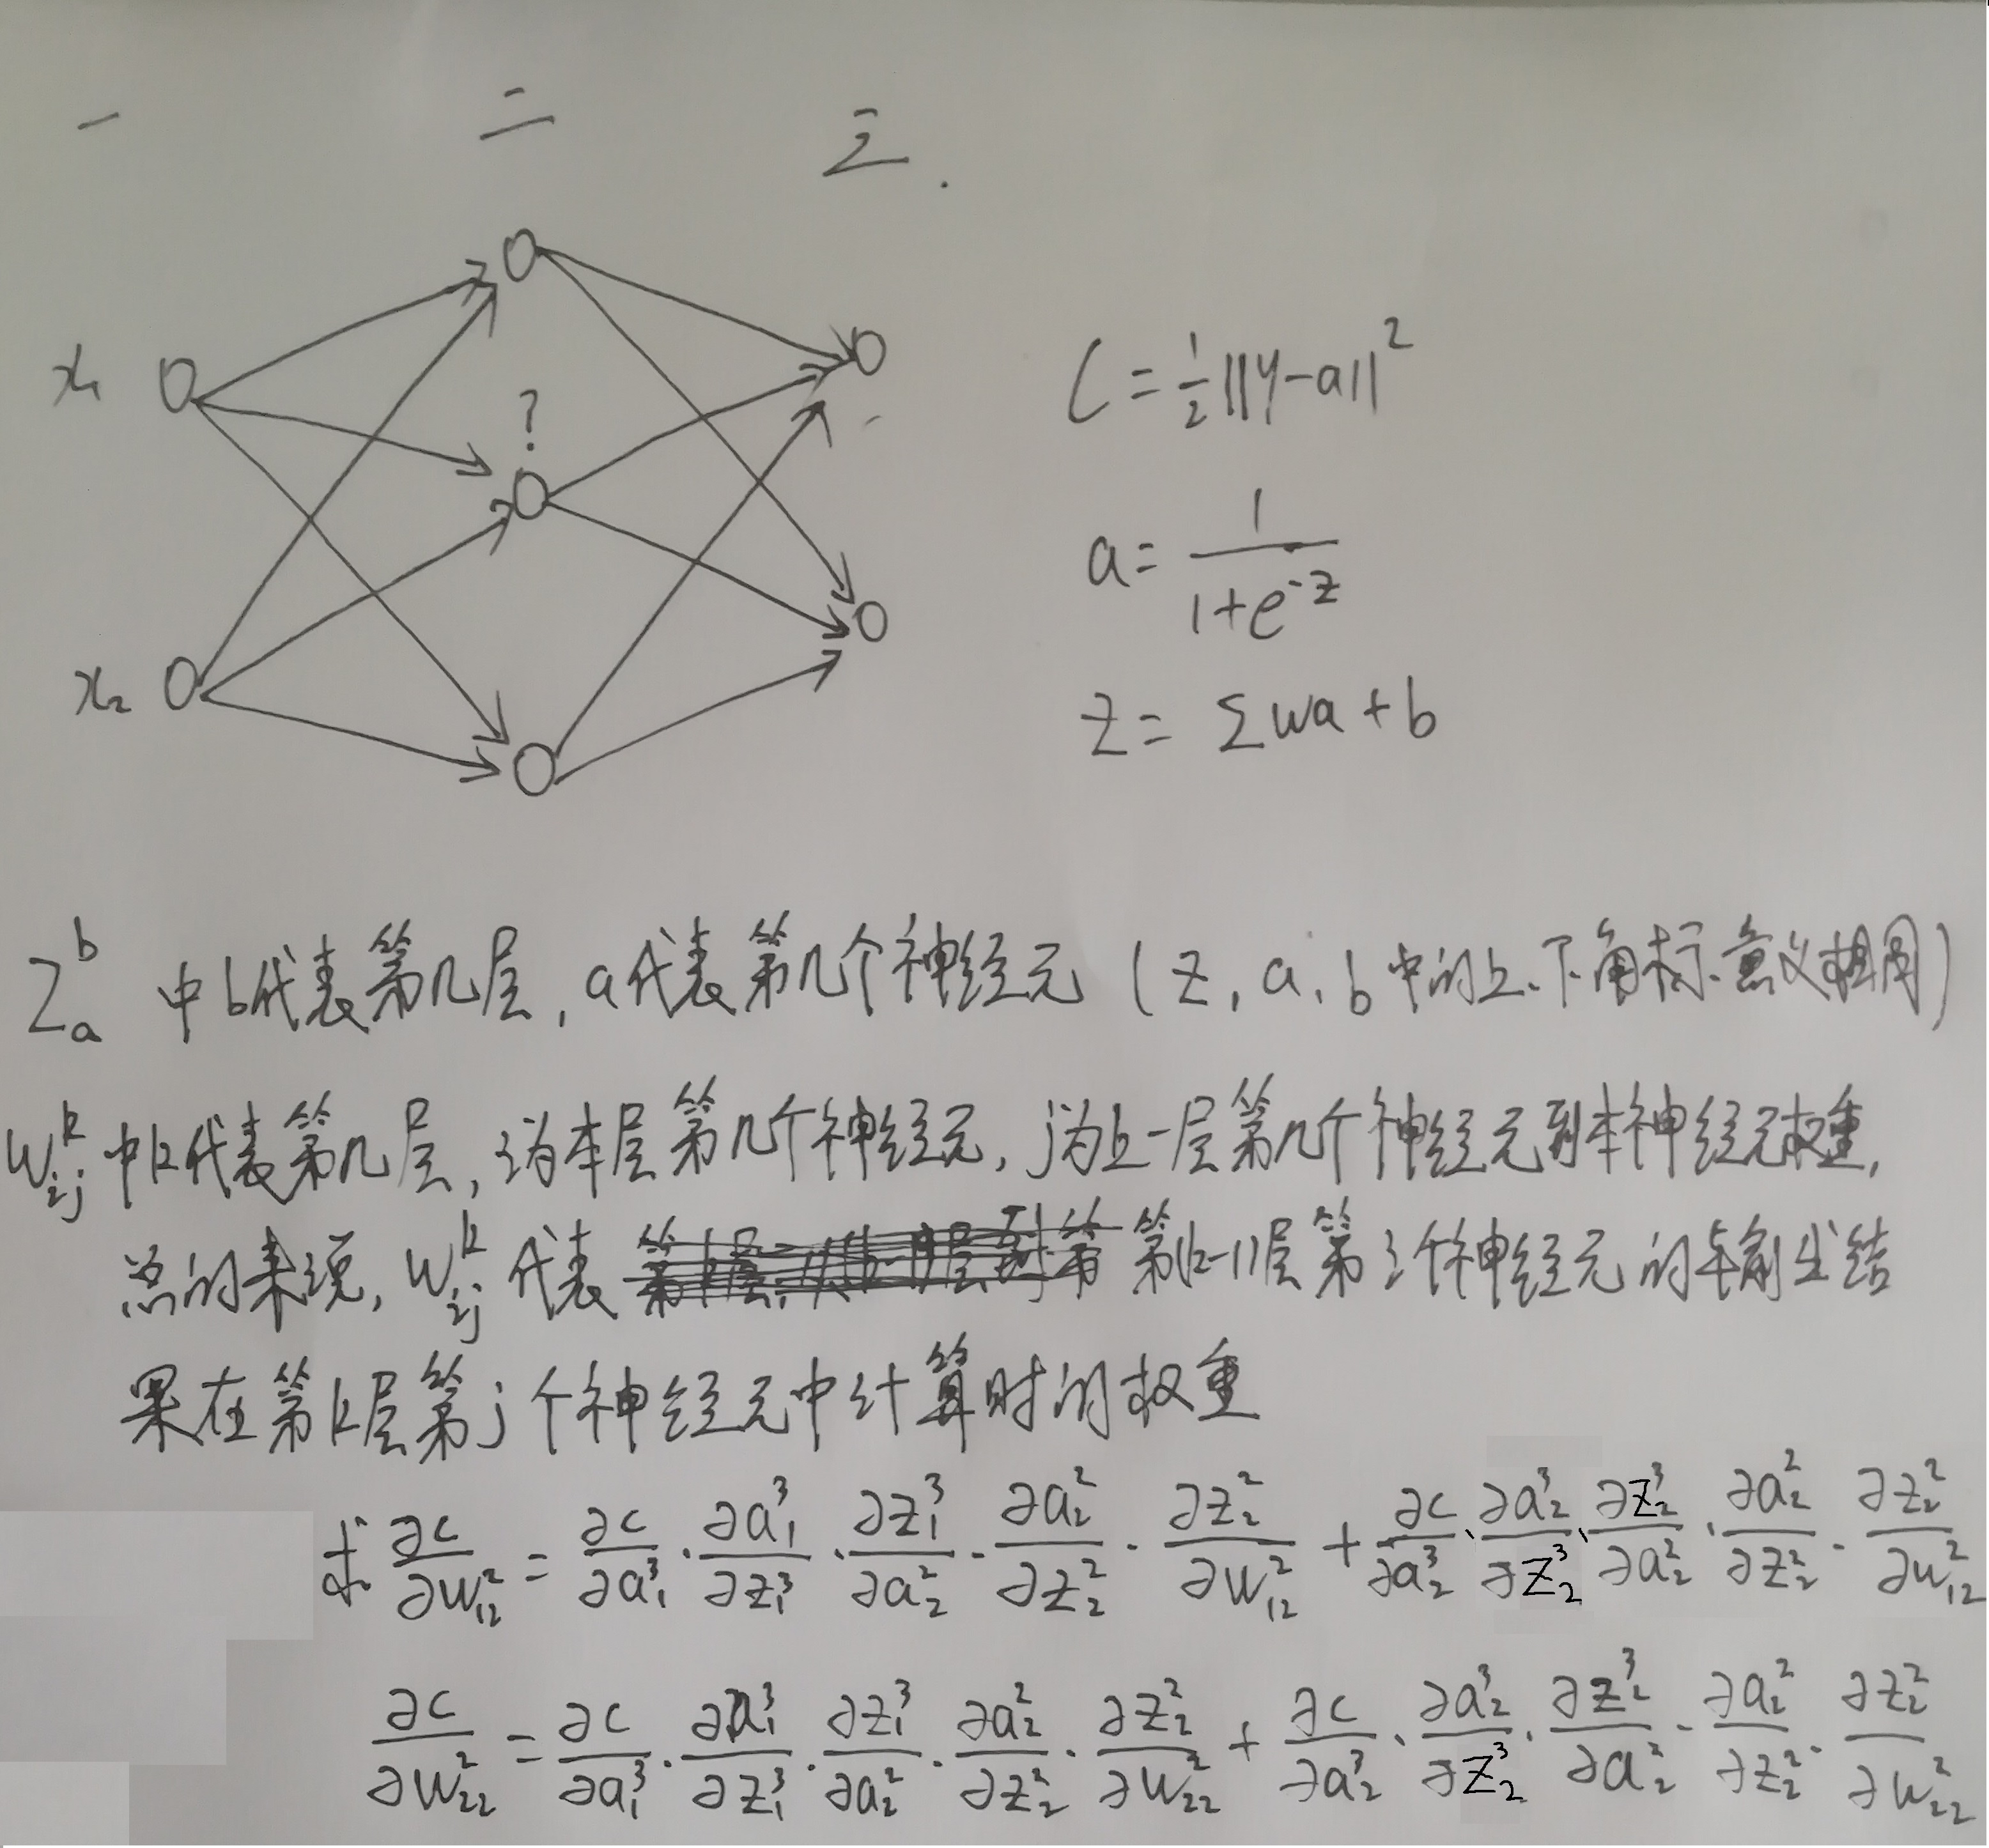 一 二 三.
x₁
C = 1/2 ||y-a||²
?
a = 1/(1+e^{-z})
x₂
z = Σwa + b
Z_a^b 中b代表第几层, a代表第几个神经元 (z, a, b中的上、下角标意义相同)
w_{ij}^k 中k代表第几层, i为本层第几个神经元, j为上一层第几个神经元到本神经元权重,
总的来说, w_{ij}^k 代表 第k-1层第i个神经元的输出结
果在第k层第j个神经元中计算时的权重
求 ∂c/∂w_{12}^2 = ∂c/∂a_1^3 · ∂a_1^3/∂z_1^3 · ∂z_1^3/∂a_2^2 · ∂a_2^2/∂z_2^2 · ∂z_2^2/∂w_{12}^2 + ∂c/∂a_2^3 · ∂a_2^3/∂z_2^3 · ∂z_2^3/∂a_2^2 · ∂a_2^2/∂z_2^2 · ∂z_2^2/∂w_{12}^2
∂c/∂w_{22}^2 = ∂c/∂a_1^3 · ∂a_1^3/∂z_1^3 · ∂z_1^3/∂a_2^2 · ∂a_2^2/∂z_2^2 · ∂z_2^2/∂w_{22}^2 + ∂c/∂a_2^3 · ∂a_2^3/∂z_2^3 · ∂z_2^3/∂a_2^2 · ∂a_2^2/∂z_2^2 · ∂z_2^2/∂w_{22}^2